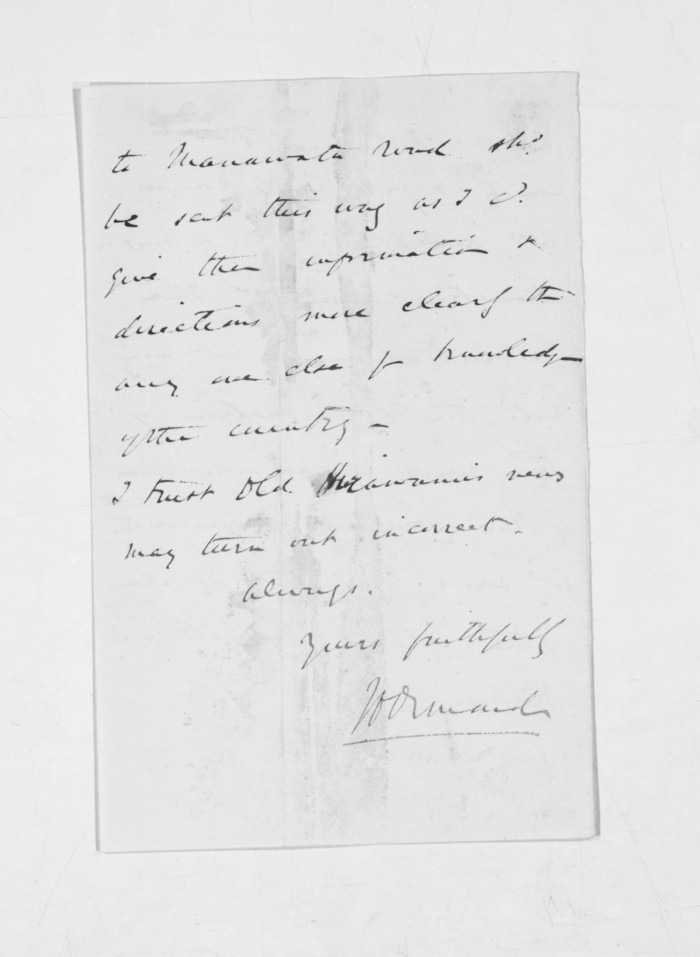 to Manawatu road shd.
be sent this way as I cd.
give them information &
directions more clearly than
any one else fr knowledge
of the country –
I trust Old news
may turn out incorrect.
Always.
Yours faithfully
JD Ormond